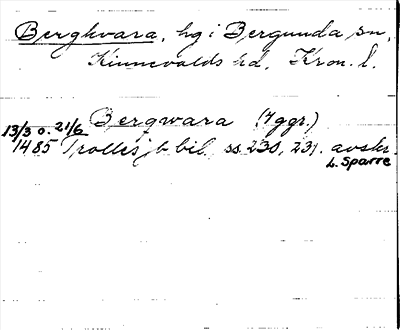 Bergkvara, hg i Bergunda sn,
Kinnevalds hd, Kron. l.
13/3 o. 21/6 Bergwara (7 ggr.)
1485 Trolles jb bil. ss. 230, 231. avskr.
L. Sparre